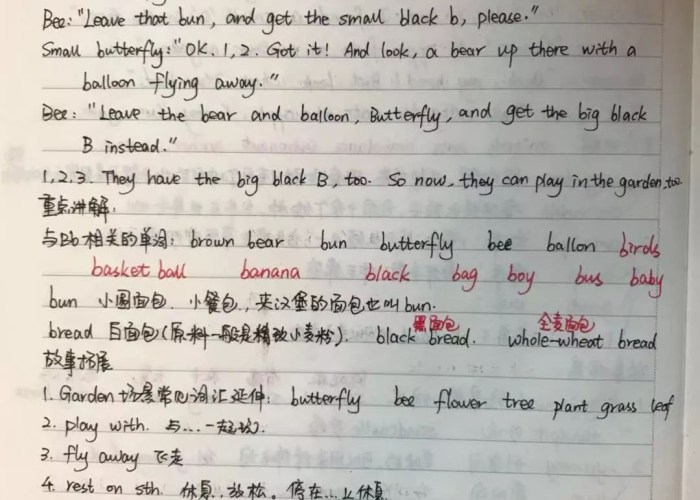 Bee: "Leave that bun, and get the small black b, please."
Small butterfly: "OK. 1, 2. Got it! And look, a bear up there with a
balloon flying away."
Bee: "Leave the bear and balloon, Butterfly, and get the big black
B instead."
1, 2, 3. They have the big black B, too. So now, they can play in the garden, too
重点讲解:
与Bb相关的单词: brown bear bun butterfly bee ballon birds
basket ball banana black bag boy bus baby
bun 小圆面包、小餐包, 夹汉堡的面包也叫bun.
黑面包 全麦面包
bread 白面包(原料一般是精致小麦粉). black bread. whole-wheat bread
故事拓展
1. Garden 场景常见词汇延伸: butterfly bee flower tree plant grass leaf
2. play with. 与...一起玩.
3. fly away 飞走
4. rest on sth. 休息、放松, 停在...上休息